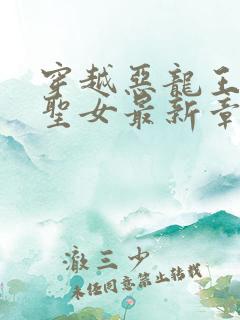 穿越惡龍王
聖女最新章
澈三少
未经同意禁止转载